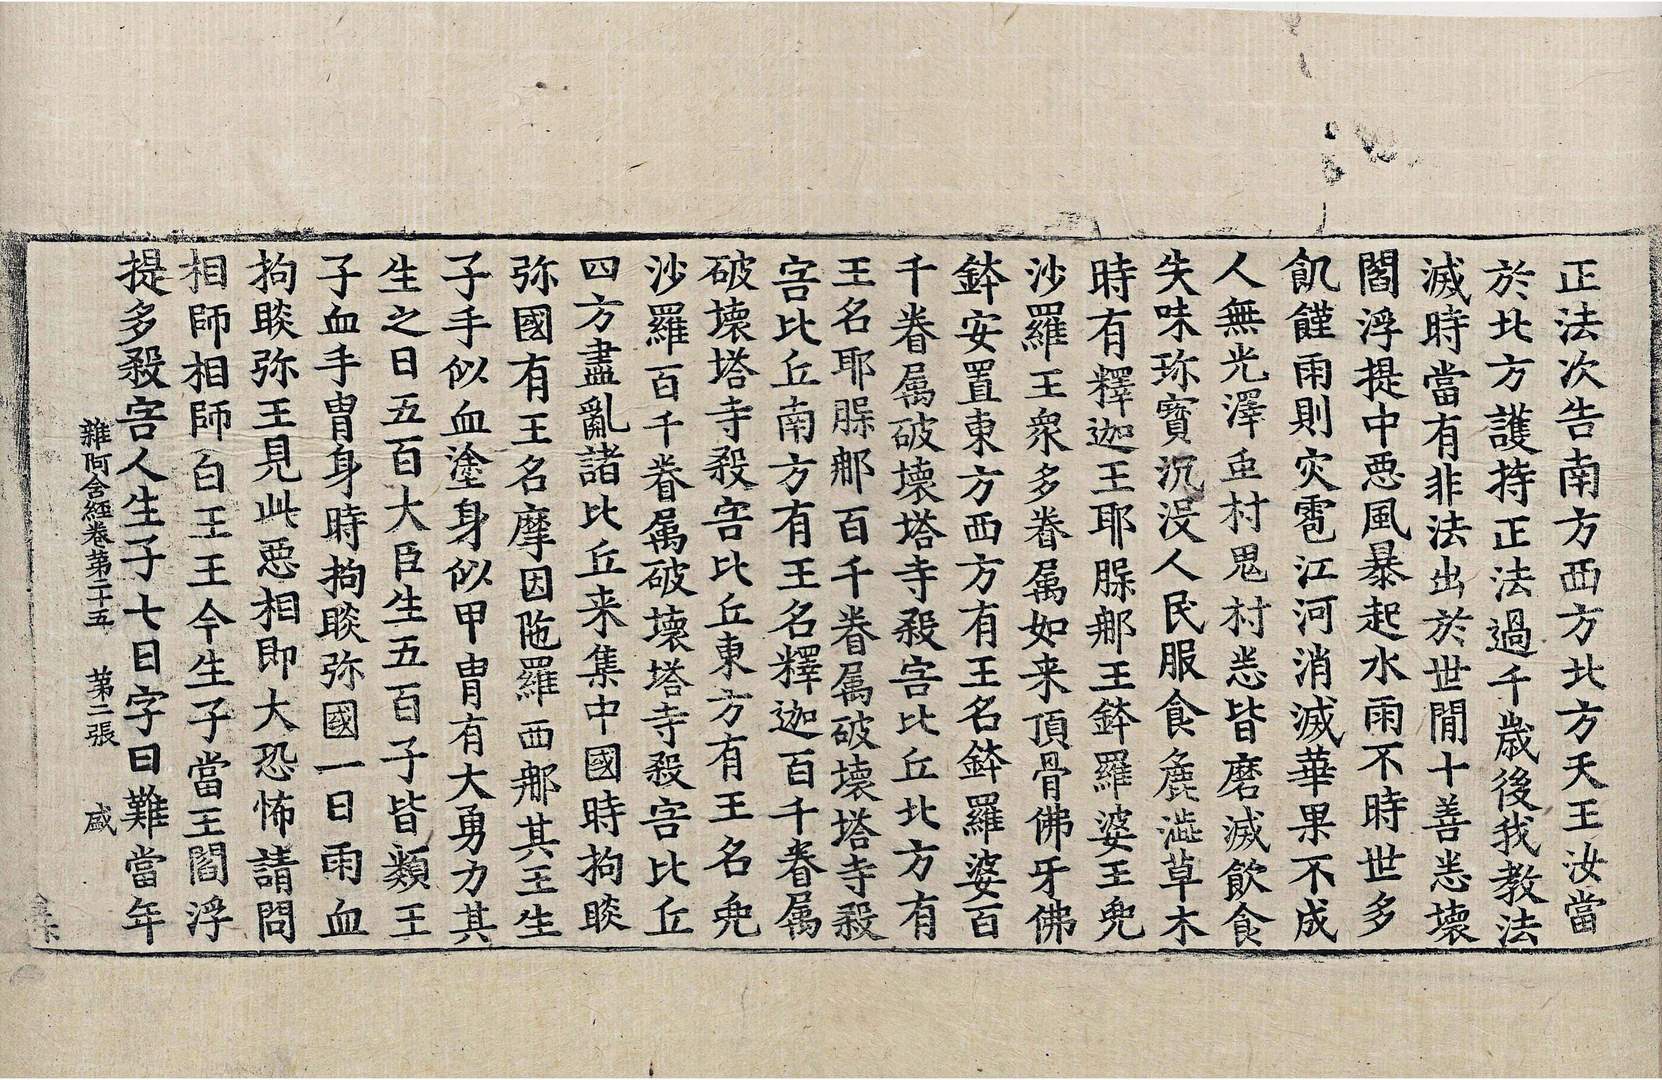 正法次告南方西方北方天王汝當
於北方護持正法過千歲後我教法
滅時當有非法出於世閒十善悉壞
閻浮提中惡風暴起水雨不時世多
飢饉雨則灾雹江河消滅華果不成
人無光澤虫村鬼村悉皆磨滅飲食
失味珎寶沉沒人民服食麁澁草木
時有釋迦王耶𦙶鄁王鉢羅婆王兠
沙羅王衆多眷属如来頂骨佛牙佛
鉢安置東方西方有王名鉢羅婆百
千眷属破壞塔寺殺害比丘北方有
王名耶𦙶鄁百千眷属破壞塔寺殺
害比丘南方有王名釋迦百千眷属
破壞塔寺殺害比丘東方有王名兠
沙羅百千眷属破壞塔寺殺害比丘
四方盡亂諸比丘来集中國時拘睒
弥國有王名摩因陁羅西鄁其王生
子手似血塗身似甲胄有大勇力其
生之日五百大臣生五百子皆類王
子血手胄身時拘睒弥國一日雨血
拘睒弥王見此惡相即大恐怖請問
相師相師白王王今生子當王閻浮
提多殺害人生子七日字曰難當年
雜阿含經卷第二十五 第二張 盛